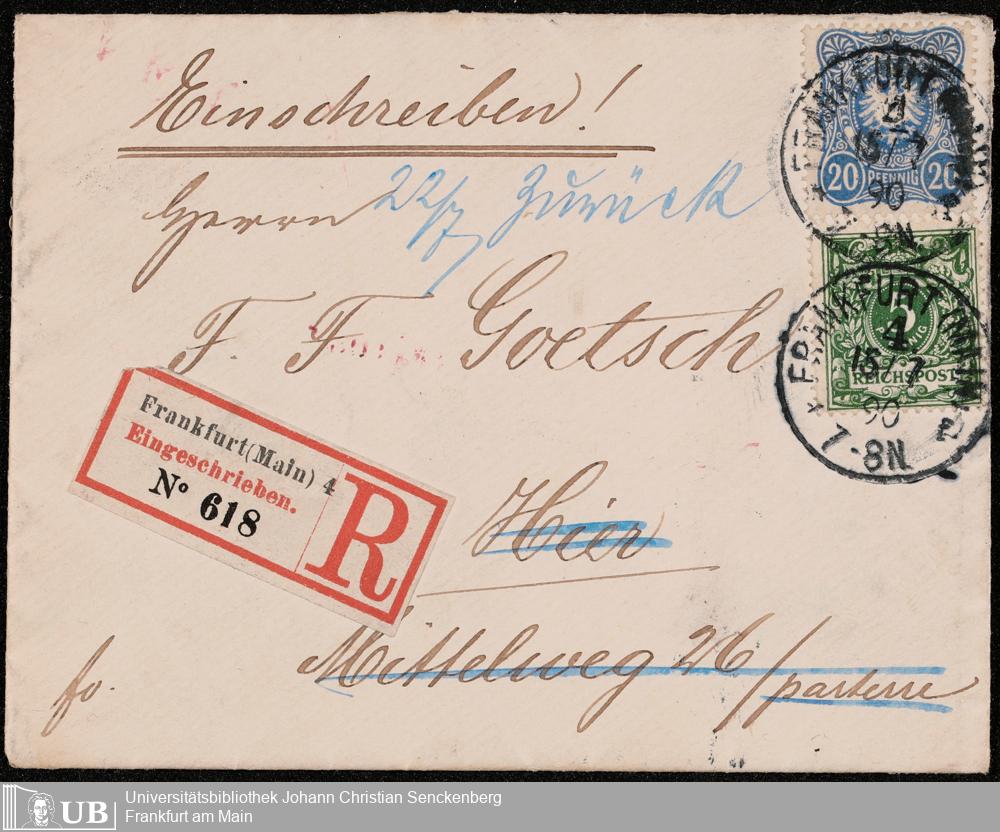 Einschreiben!
Herrn 22/7 Zurück
F. F. Goetsch
Hier
Mittelweg 26/parterre
fo.
Frankfurt (Main) 4
Eingeschrieben.
No 618
R
20 PFENNIG 20
FRANKFURT
4
15/7
90
8N
PFENNIG
REICHSPOST
FRANKFURT (MAIN)
4
15/7
90
7-8N
UB
Universitätsbibliothek Johann Christian Senckenberg
Frankfurt am Main